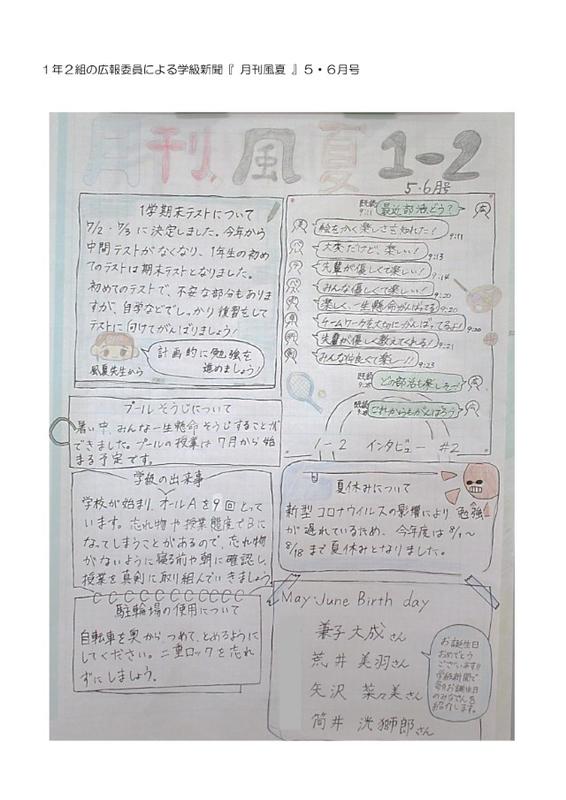 1年2組の広報委員による学級新聞『 月刊風夏 』5・6月号
月刊風夏 1-2
5・6月号
1学期末テストについて
7/2・7/3 に決定しました。今年から
中間テストがなくなり、1年生の初め
てのテストは期末テストとなりました。
初めてのテストで、不安な部分もありま
すが、自学などでしっかり復習をして
テストに向けてがんばりましょう!
計画的に勉強を
進めましょう!
風夏先生から
既読
9:11
最近部活どう?
絵をかく楽しさを知れた!
9:11
大変だけど、楽しい!
9:13
先輩が優しくて楽しい!
9:14
みんな優しくて楽しい!
9:20
楽しく、一生懸命がんばってる!
9:20
チームワークを大切にがんばってるよ!
9:20
先輩が優しく教えてくれる!
9:21
みんな仲良くて楽しー!!
9:23
既読
どの部活も楽しそう!
既読
これからもがんばろう
1-2 インタビュー #2
プールそうじについて
暑い中、みんな一生懸命そうじすることが
できました。プールの授業は7月から始
まる予定です。
学校の出来事
学校が始まり、オールAを9回とって
います。忘れ物や授業態度でBに
なってしまうことがあるので、忘れ物
がないように寝る前や朝に確認し、
授業を真剣に取り組んでいきましょう。
夏休みについて
新型コロナウイルスの影響により勉強
が遅れているため、今年度は8/1〜
8/18まで夏休みとなりました。
駐輪場の使用について
自転車を奥からつめて、とめるように
してください。二重ロックを忘れ
ずにしましょう。
May・June Birth day
兼子 大成さん
荒井 美羽さん
矢沢 菜々美さん
筒井 洸獅郎さん
お誕生日
おめでとう
ございます!!
学級新聞で
毎月お誕生月
のみなさんを
紹介します。